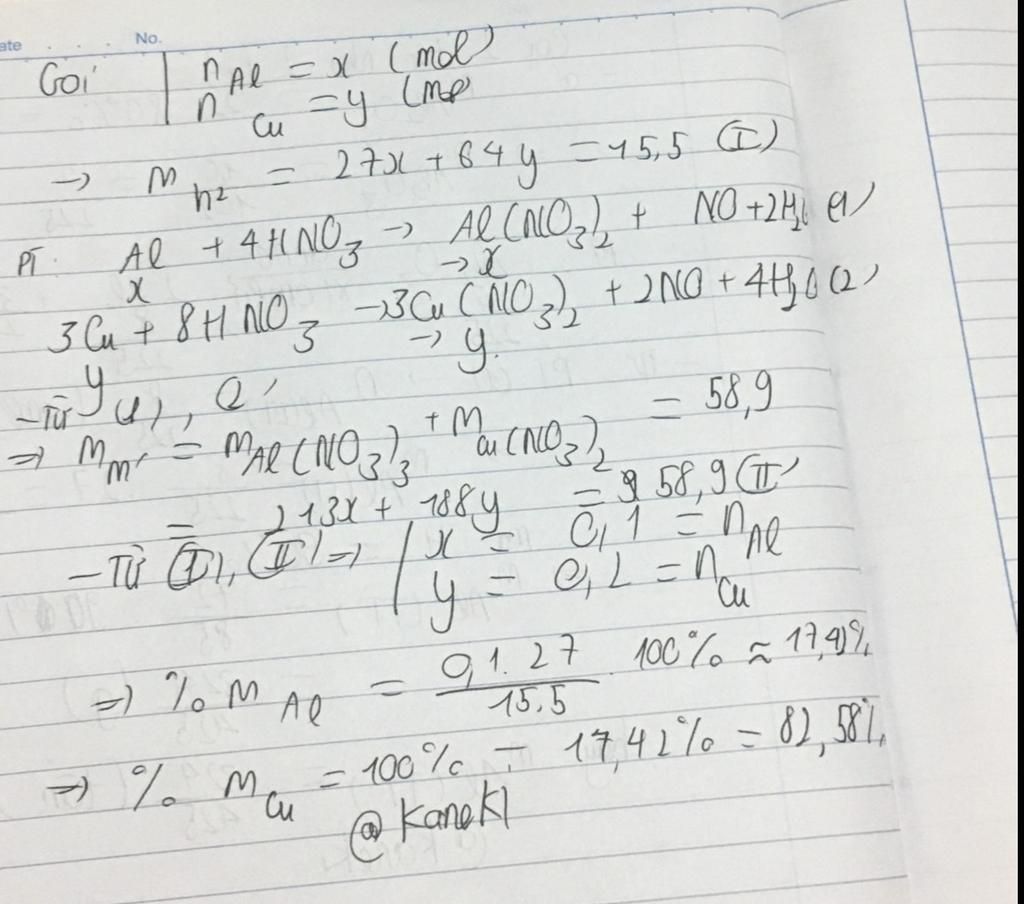 ate No.
Gọi | n Al = x (mol)
n Cu = y (mol
→ m h² = 27x + 64y = 15,5 (I)
PT: Al + 4HNO3 → Al(NO3)2 + NO + 2H2O (1)
x → x
3Cu + 8HNO3 → 3Cu(NO3)2 + 2NO + 4H2O (2)
y → y
- Từ (1), (2)
=> m m' = m Al(NO3)3 + m Cu(NO3)2 = 58,9
= 213x + 188y = 58,9 (II)
- Từ (I), (II) => | x = 0,1 = n Al
y = 0,2 = n Cu
=> % m Al = 0,1.27 / 15,5 . 100% ≈ 17,42%
=> % m Cu = 100% - 17,42% = 82,58%
@KaneKI